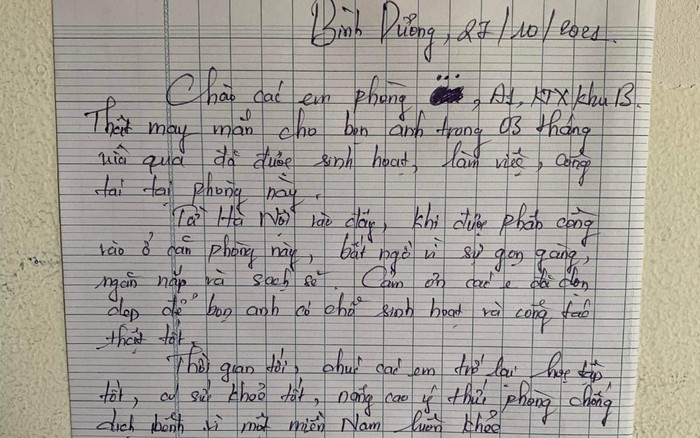 Bình Dương, 27/10/2021.
Chào các em phòng ..., A1, KTX khu B.
Thật may mắn cho bọn anh trong 03 tháng
vừa qua đã được sinh hoạt, làm việc, công
tác tại phòng này.
Từ Hà Nội vào đây, khi được phân công
vào ở căn phòng này, bất ngờ vì sự gọn gàng,
ngăn nắp và sạch sẽ. Cảm ơn các e đã dọn
dẹp để bọn anh có chỗ sinh hoạt và công tác
thật tốt.
Thời gian tới, chúc các em trở lại học tập
tốt, có sức khoẻ tốt, nâng cao ý thức phòng chống
dịch bệnh vì một miền Nam luôn khoẻ